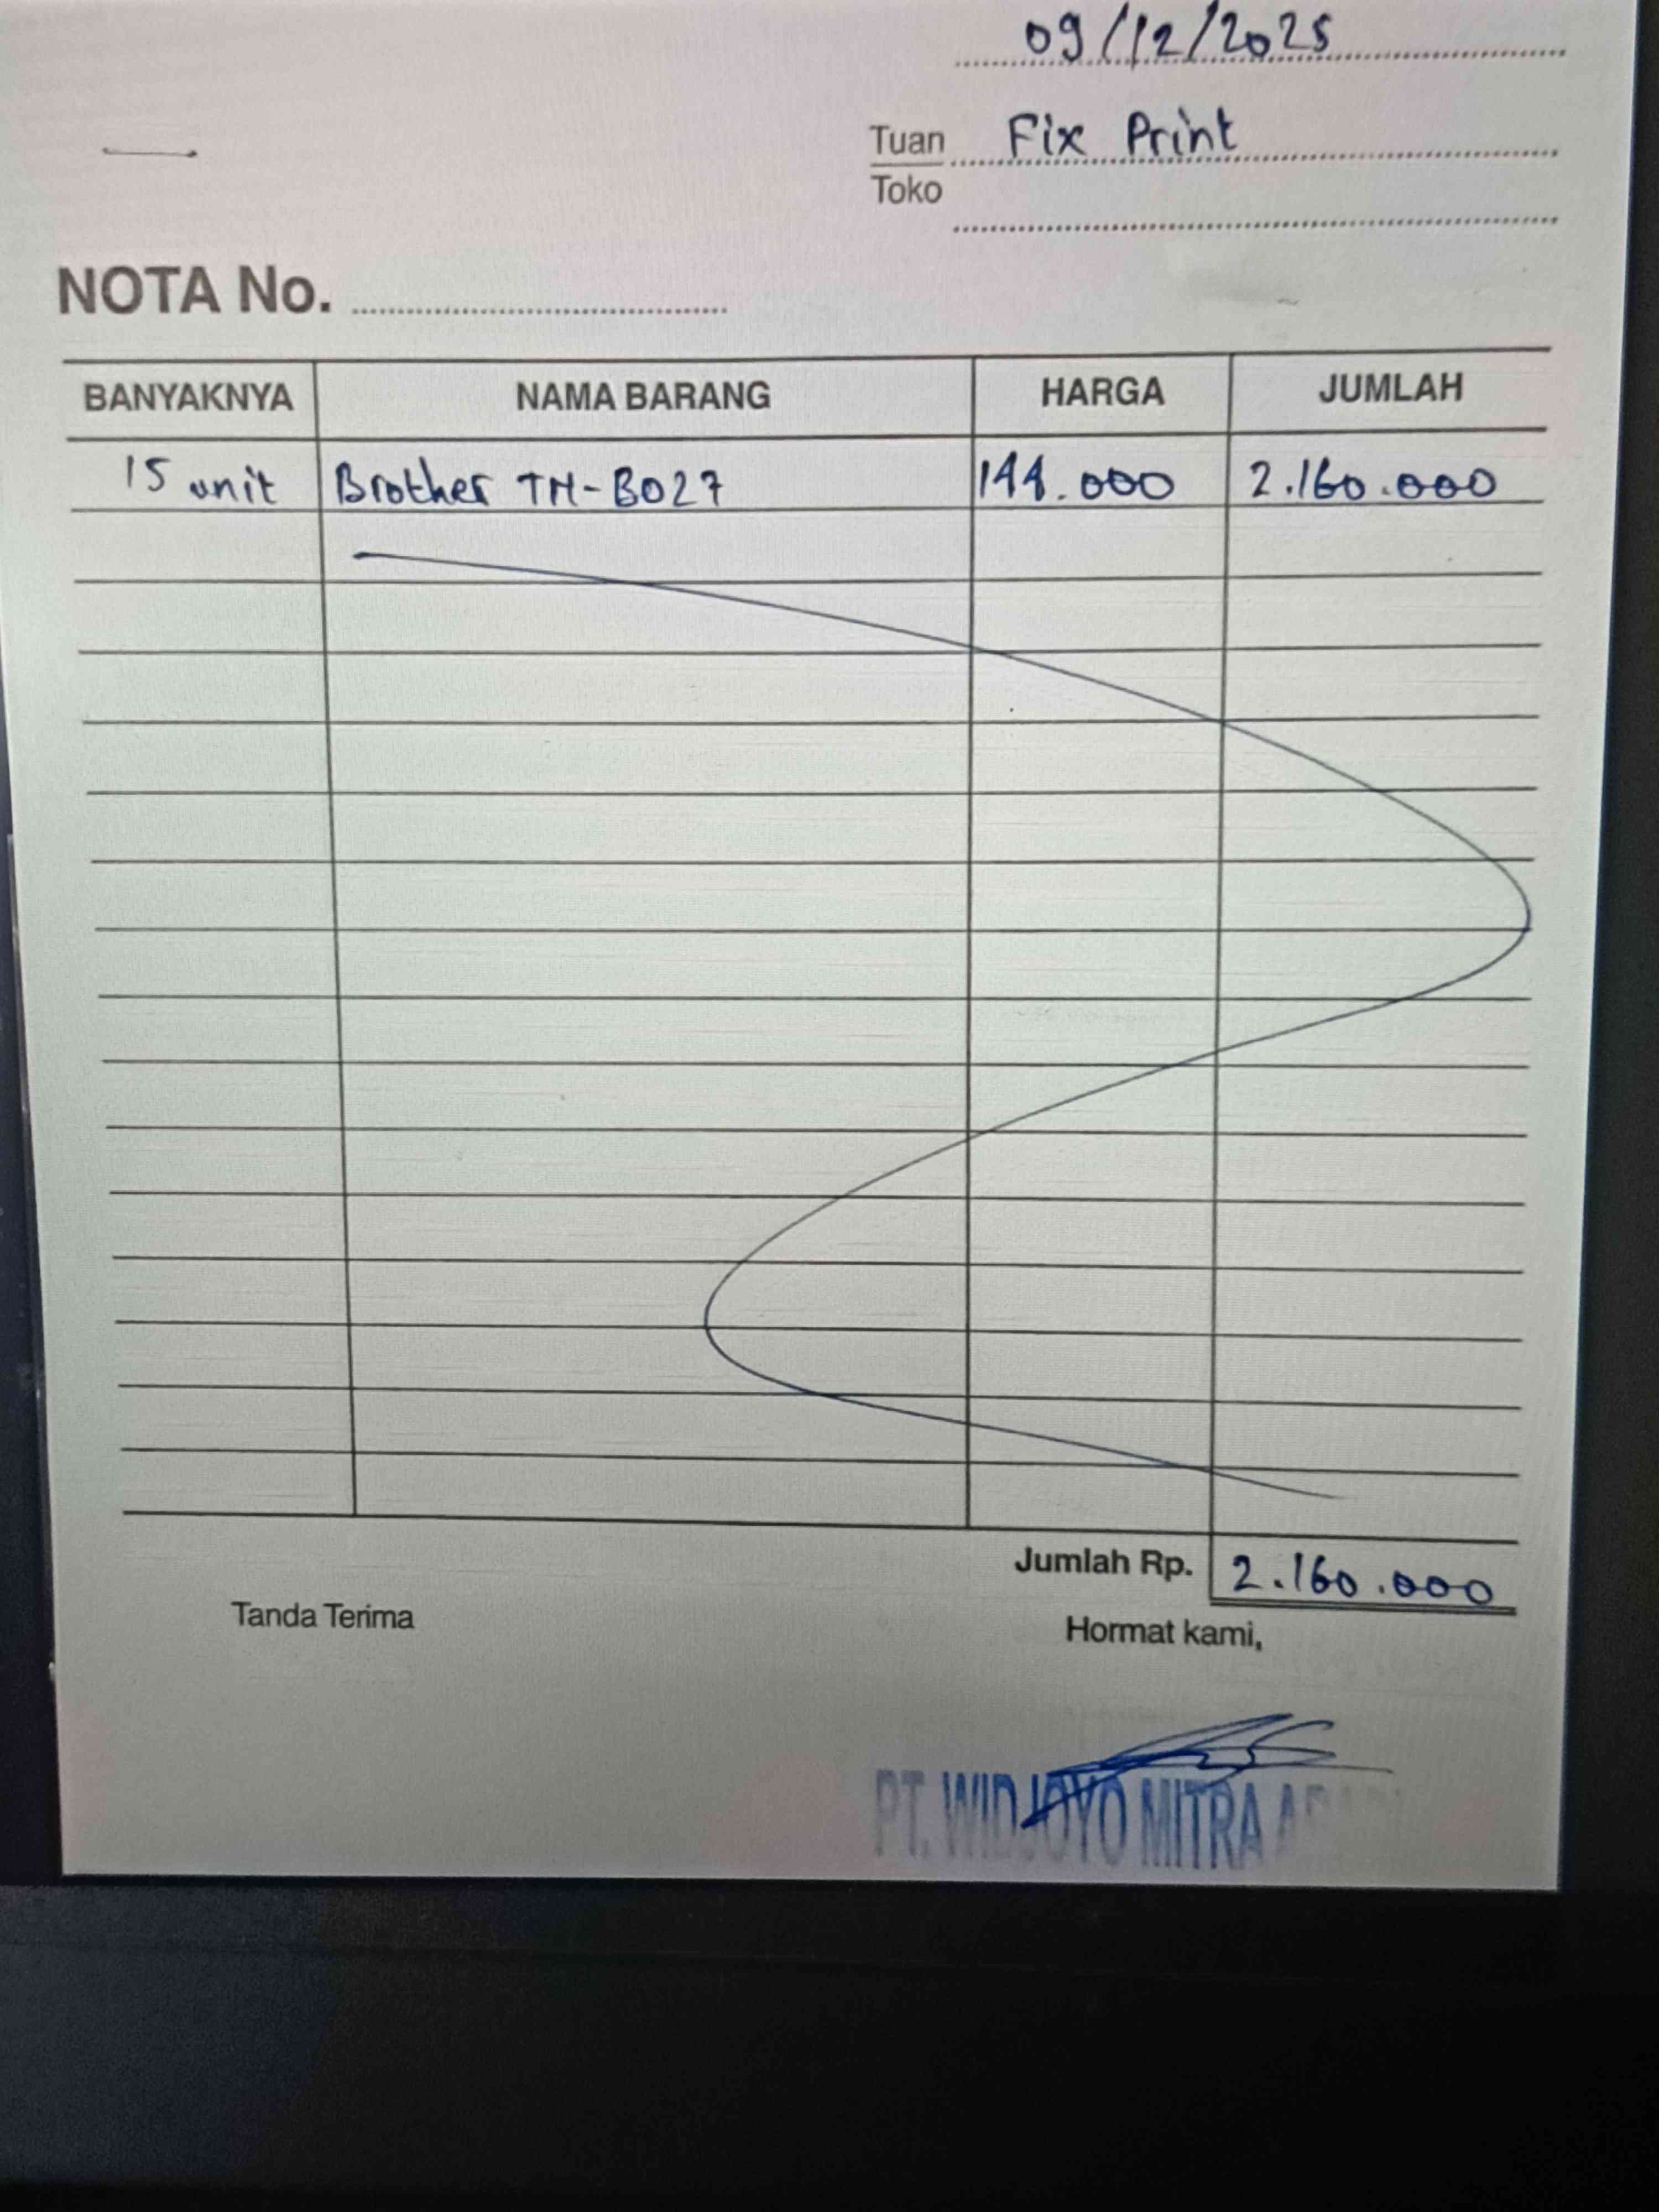 09/12/2025
Tuan Fix Print
Toko
NOTA No.
BANYAKNYA NAMA BARANG HARGA JUMLAH
15 unit Brother TN-B027 144.000 2.160.000
Jumlah Rp. 2.160.000
Tanda Terima Hormat kami,
PT. WIDJOYO MITRA